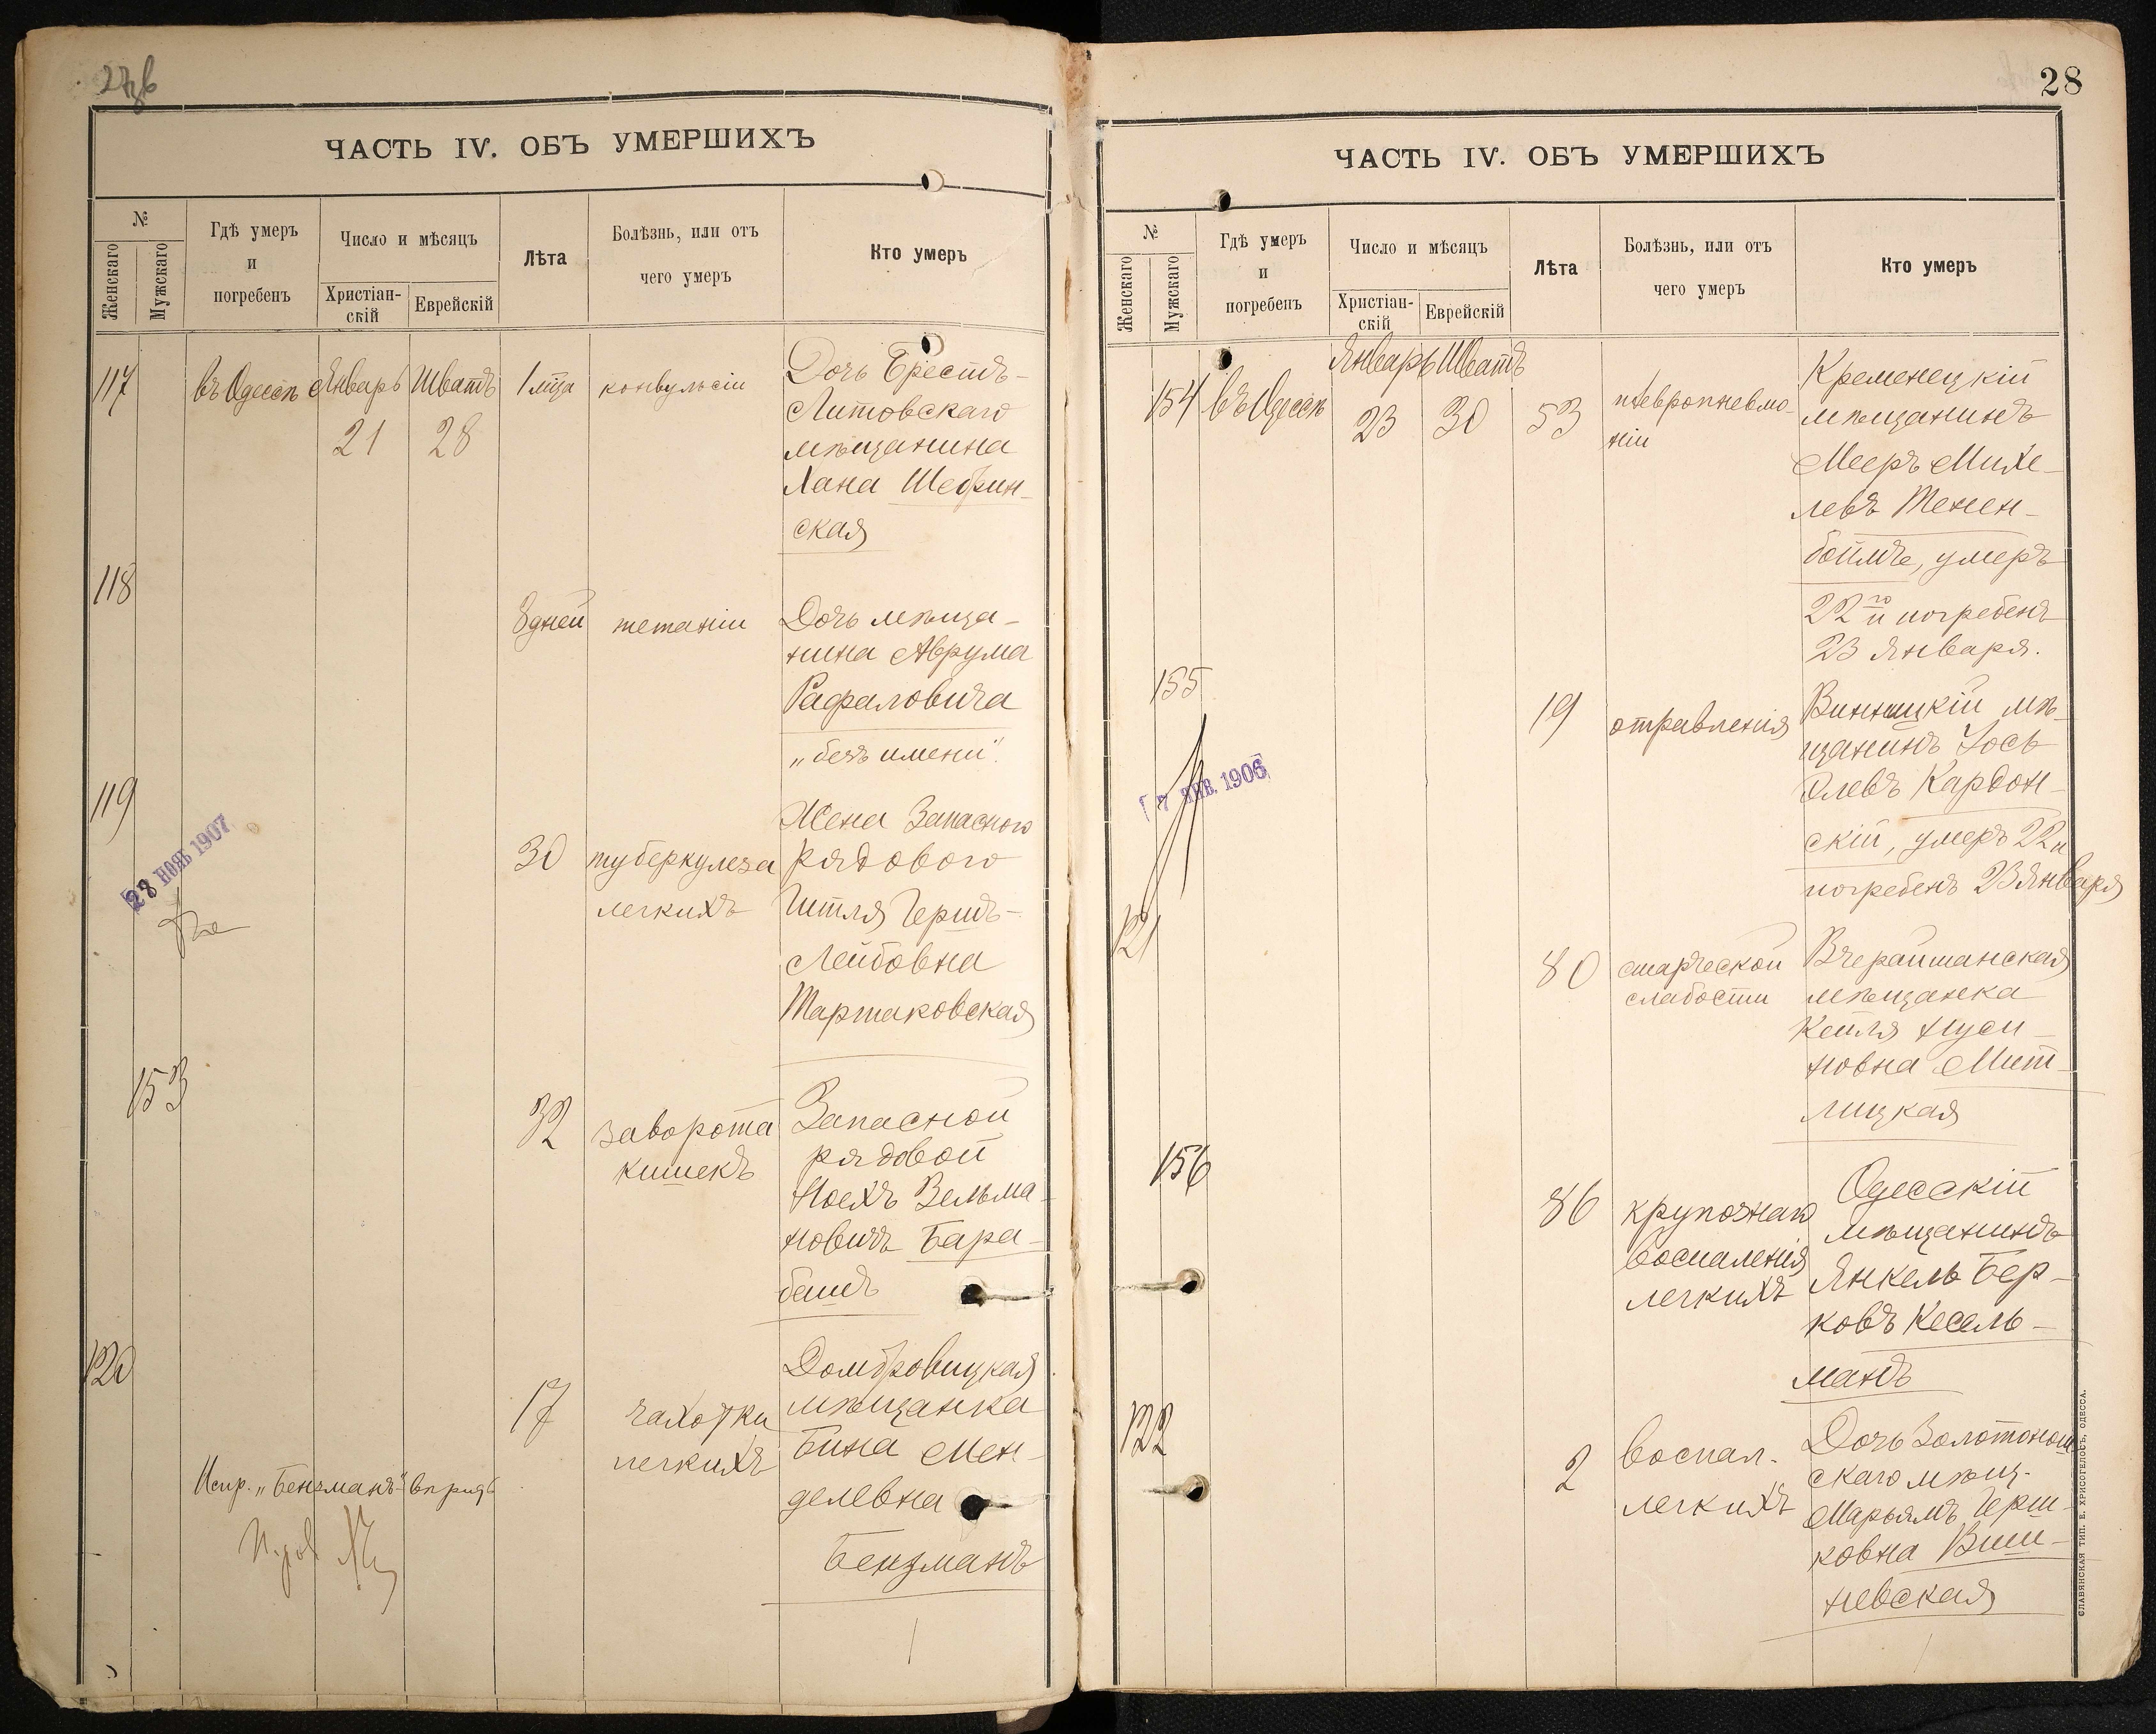 ЧАСТЬ IV. ОБЪ УМЕРШИХЪ
№
Женскаго
Мужскаго
Гдѣ умеръ
и
погребенъ
Число и мѣсяцъ
Христіан-
скій
Еврейскій
Лѣта
Болѣзнь, или отъ
чего умеръ
Кто умеръ
117
въ Одессѣ
Январь
21
Шватъ
28
1 мца
конвульсіи
Дочь Брестъ-
Литовскаго
мѣщанина
Хана Шебрин-
ская
118
8 дней
тетаніи
Дочь мѣща-
нина Аврума
Рафаловича
„безъ имени".
119
28 НОЯБ 1907
30
туберкулеза
легкихъ
Жена Запасного
рядового
Гитля Гершъ-
Лейбовна
Тартаковская
153
32
заворота
кишекъ
Запасной
рядовой
Ноехъ Зельма-
новичъ Бара-
башъ
120
17
чахотки
легкихъ
Домбровицкая
мѣщанка
Бина Мен-
делевна
Бензманъ
Испр. „Бензманъ"
28
ЧАСТЬ IV. ОБЪ УМЕРШИХЪ
№
Женскаго
Мужскаго
Гдѣ умеръ
и
погребенъ
Число и мѣсяцъ
Христіан-
скій
Еврейскій
Лѣта
Болѣзнь, или отъ
чего умеръ
Кто умеръ
154
въ Одессѣ
Январь
23
Шватъ
30
53
плевропневмо-
ніи
Кременецкій
мѣщанинъ
Мееръ Михе-
левъ Тенен-
боймъ, умеръ
22го и погребенъ
23 Января.
155
7 ЯНВ. 1906
19
отравленія
Винницкій мѣ-
щанинъ Іось
Элевъ Кардон-
скій, умеръ 22 и
погребенъ 23 Января
121
80
старческой
слабости
Вчерайшанская
мѣщанка
Кейля Нуси-
новна Мит-
лицкая
156
86
крупознаго
воспаленія
легкихъ
Одесскій
мѣщанинъ
Янкель Бер-
ковъ Кесель-
манъ
122
2
воспал.
легкихъ
Дочь Золотонош-
скаго мѣщ.
Марьямъ Герш-
ковна Виш-
невская
СЛАВЯНСКАЯ ТИП. Е. ХРИСОГЕЛОСЪ, ОДЕССА.